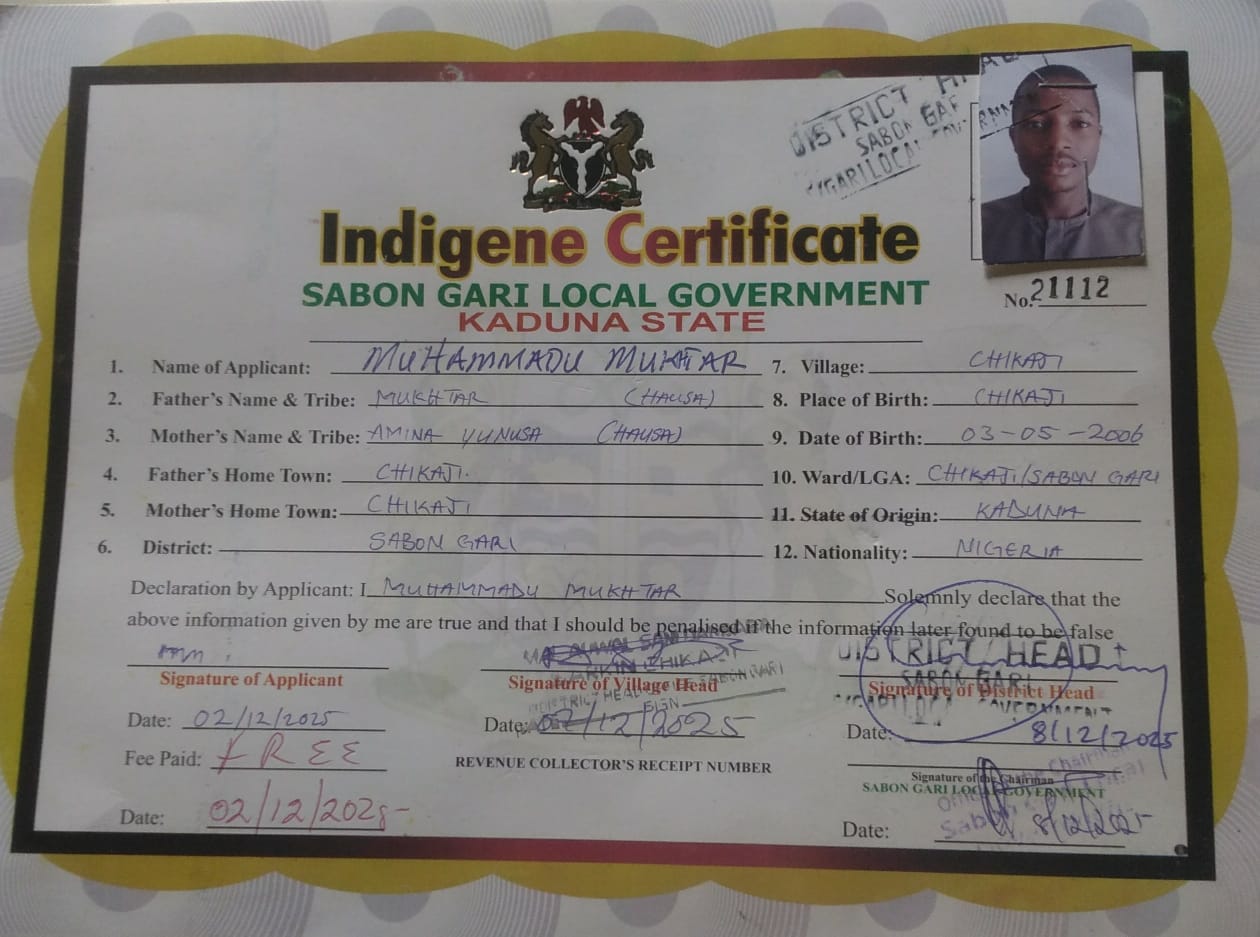 DISTRICT HEAD
SABON GARI
GARI LOCAL GOVERNM
Indigene Certificate
SABON GARI LOCAL GOVERNMENT
KADUNA STATE
No. 21112
1. Name of Applicant: MUHAMMADU MUKHTAR 7. Village: CHIKAJI
2. Father's Name & Tribe: MUKHTAR (HAUSA) 8. Place of Birth: CHIKAJI
3. Mother's Name & Tribe: AMINA YUNUSA (HAUSA) 9. Date of Birth: 03-05-2006
4. Father's Home Town: CHIKAJI. 10. Ward/LGA: CHIKAJI/SABON GARI
5. Mother's Home Town: CHIKAJI 11. State of Origin: KADUNA
6. District: SABON GARI 12. Nationality: NIGERIA
Declaration by Applicant: I MUHAMMADU MUKHTAR Solemnly declare that the
above information given by me are true and that I should be penalised if the information later found to be false
DISTRICT HEAD
SABON GARI
GOVERNMENT
Signature of Applicant Signature of Village Head Signature of District Head
Date: 02/12/2025 Date: 02/12/2025 Date: 8/12/2025
Fee Paid: FREE REVENUE COLLECTOR'S RECEIPT NUMBER
Signature of the Chairman
SABON GARI LOCAL GOVERNMENT
Date: 02/12/2025 Date: 8/12/2025